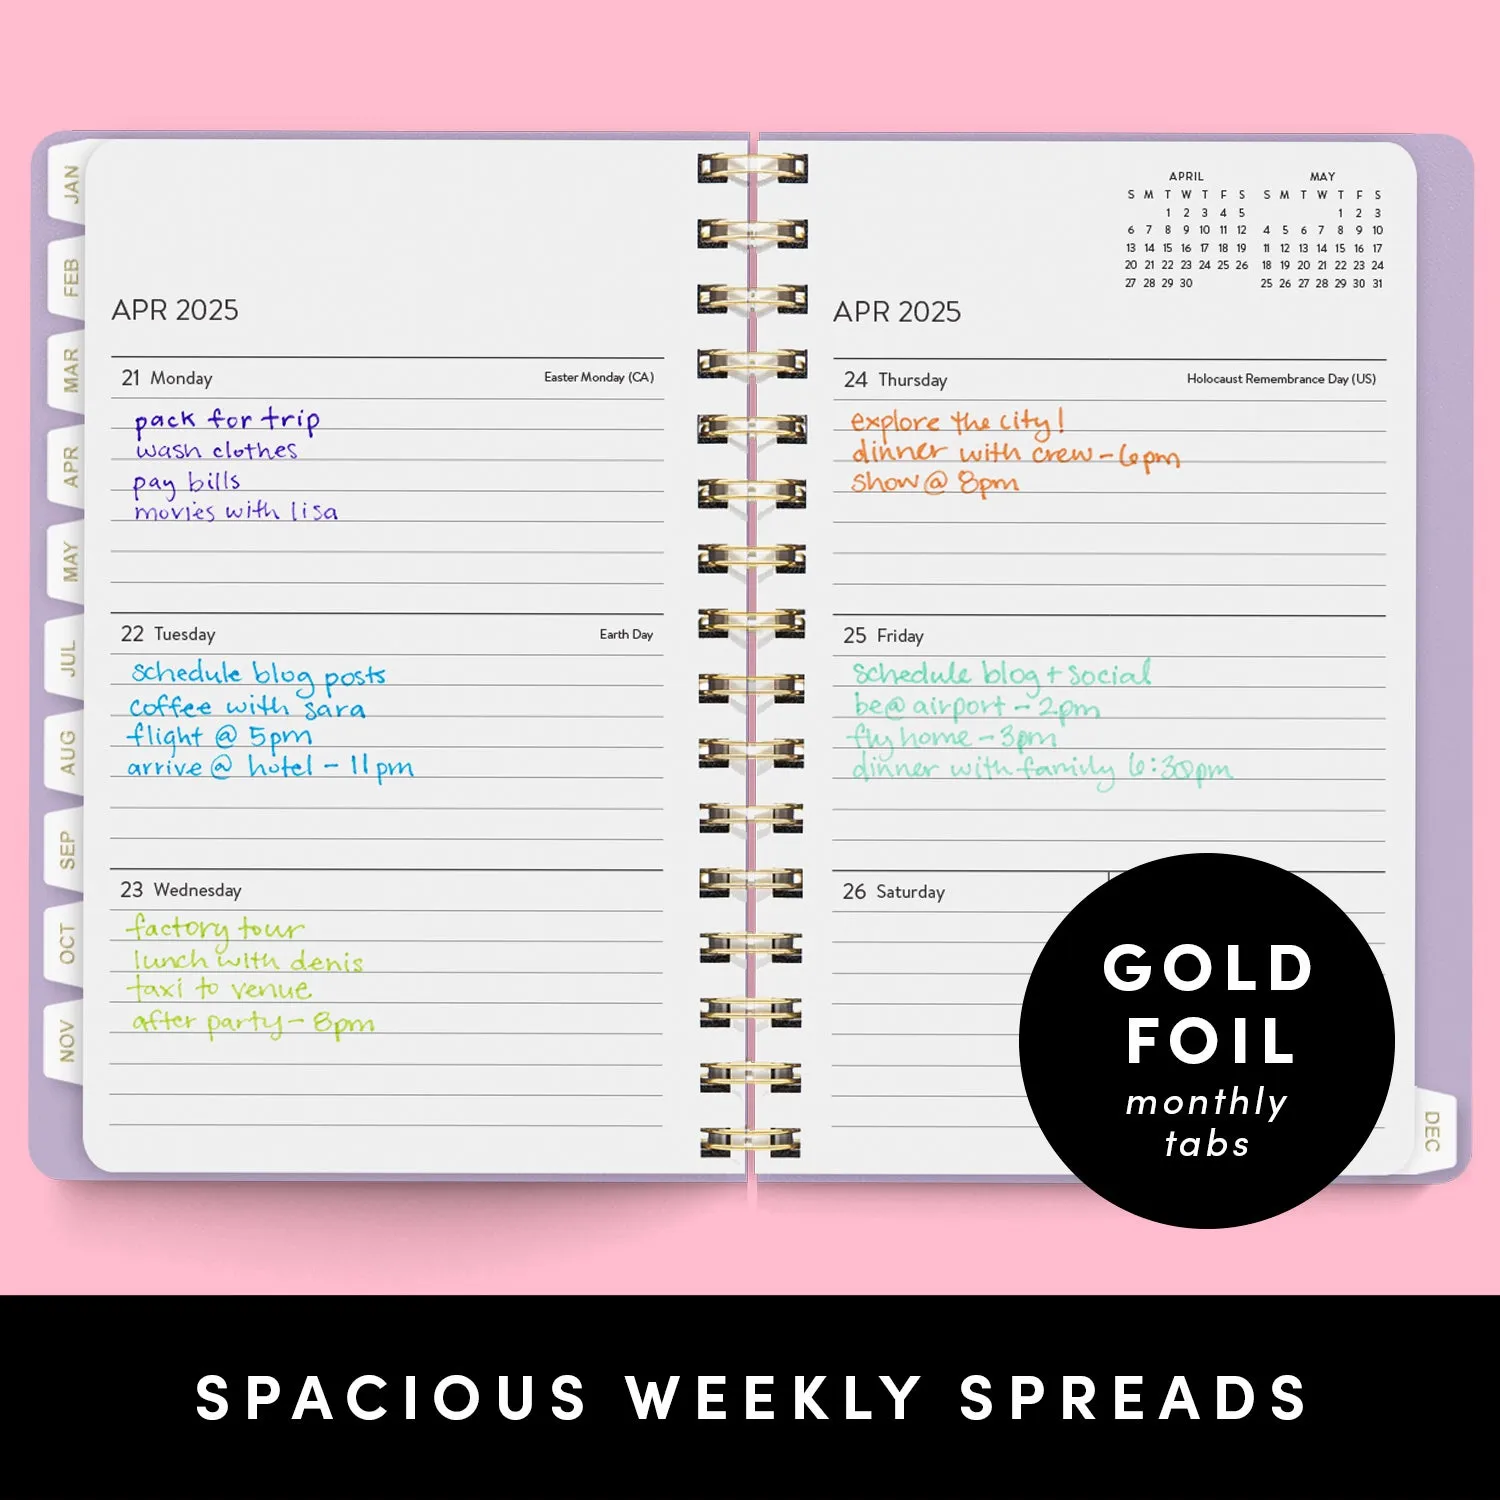 JAN
FEB
MAR
APR
MAY
JUL
AUG
SEP
OCT
NOV
APR 2025
21 Monday Easter Monday (CA)
pack for trip
wash clothes
pay bills
movies with lisa
22 Tuesday Earth Day
schedule blog posts
coffee with sara
flight @ 5pm
arrive @ hotel - 11pm
23 Wednesday
factory tour
lunch with denis
taxi to venue
after party - 8pm
APRIL
S M T W T F S
1 2 3 4 5
6 7 8 9 10 11 12
13 14 15 16 17 18 19
20 21 22 23 24 25 26
27 28 29 30
MAY
S M T W T F S
1 2 3
4 5 6 7 8 9 10
11 12 13 14 15 16 17
18 19 20 21 22 23 24
25 26 27 28 29 30 31
APR 2025
24 Thursday Holocaust Remembrance Day (US)
explore the city!
dinner with crew - 6pm
show @ 8pm
25 Friday
schedule blog + social
be @ airport - 2pm
fly home - 3pm
dinner with family 6:30pm
26 Saturday
DEC
GOLD
FOIL
monthly
tabs
SPACIOUS WEEKLY SPREADS